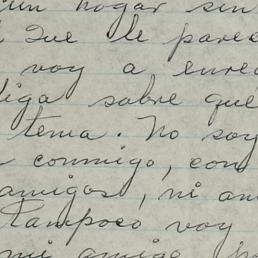 un hogar sin
Que le parec
voy a enre
diga sobre que
tema. No soy
conmigo, con
amigos, ni am
Tampoco voy
mi amigo